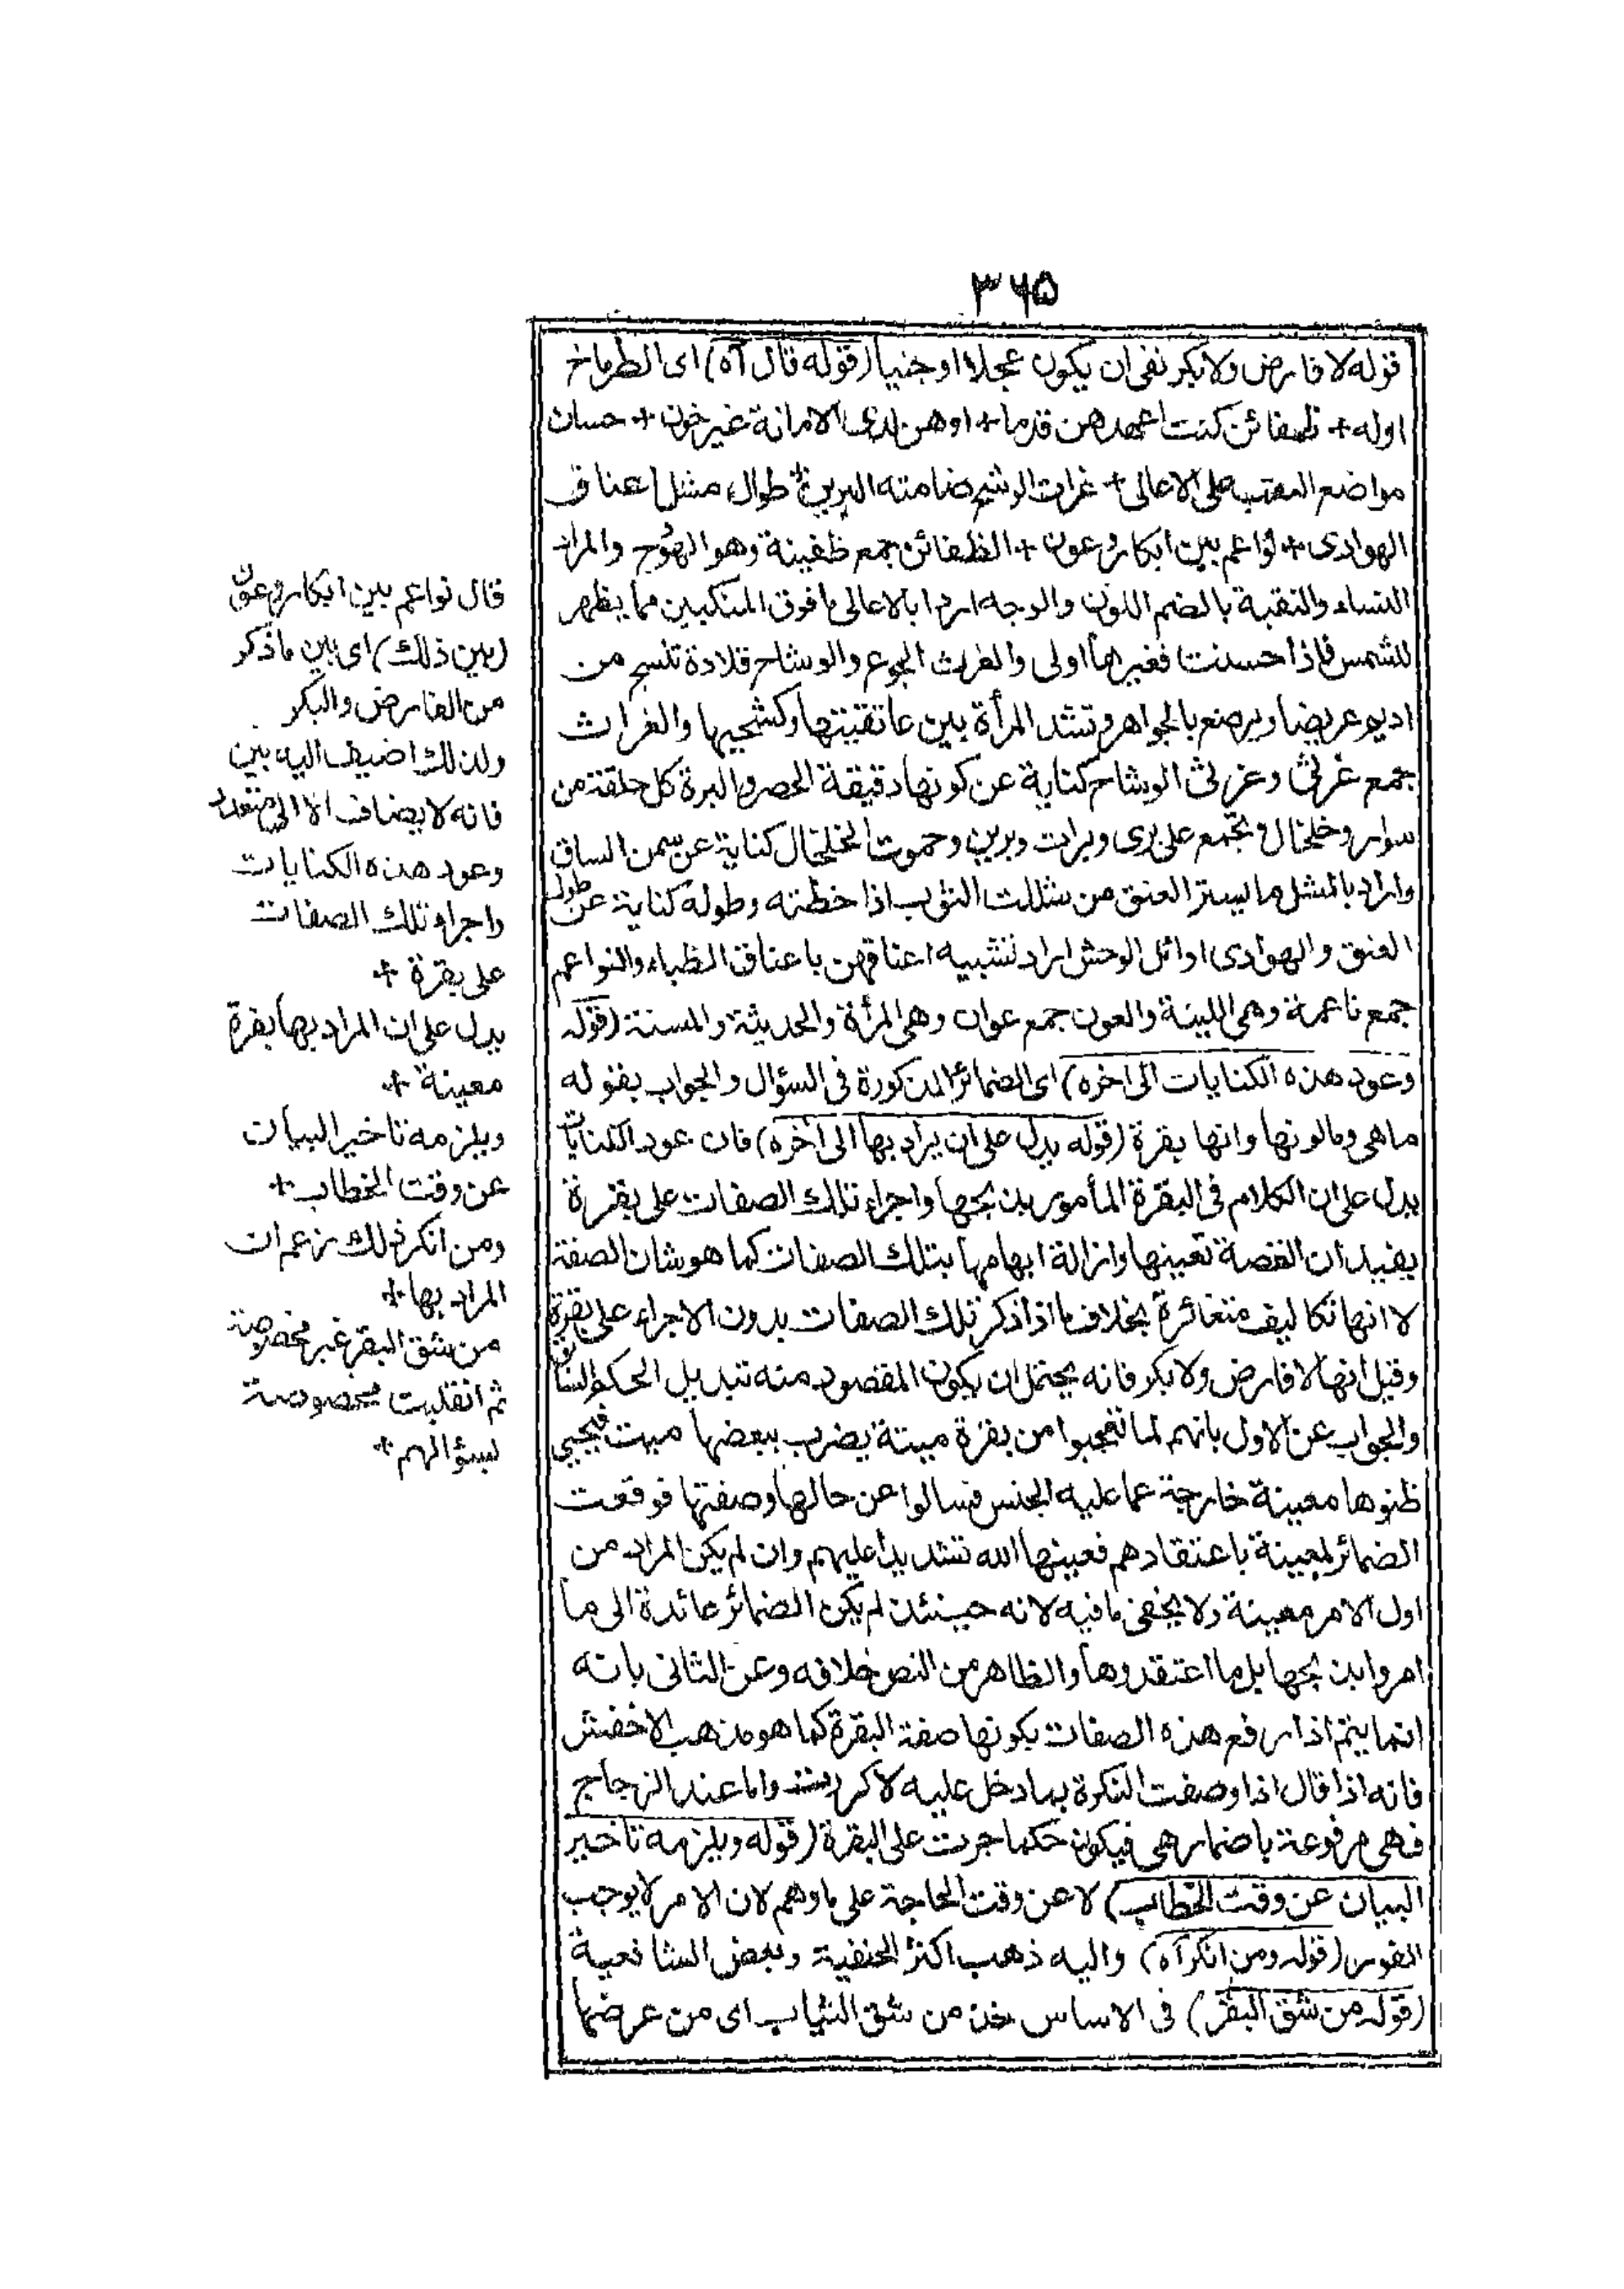 ۳۶۵
قوله لا فارض ولا بكر نفى ان يكون عجلا او جنينا (قوله قال آه) اى الطرماح
اوله + ظعائن كنت اعهدهن قدما + وهن لدى الامانة غير خون + حسان
مواضع النقب الاعالى + غراث الوشح صامتة البرين + طوال مشل اعناق
الهوادى + نواعم بين ابكار وعون + الظعائن جمع ظعينة وهو الهودج والمراد
النساء والنقبة بالضم اللون والوجه اراد بالاعالى ما فوق المنكبين مما يظهر
للشمس فاذا حسنت فغيرها اولى والغرث الجوع والوشاح قلادة تنسج من
اديم عريضا ويرصع بالجواهر وتشد المرأة بين عاتقيها وكشحيها والغراث
جمع غرثى وغرثى الوشاح كناية عن كونها دقيقة الخصر والبرة كل حلقة من
سوار وخلخال وتجمع على برى وبرات وبرين وصموت الخلخال كناية عن سمن الساق
واراد بالمشل ما يستر العنق من شللت الثوب اذا خطته وطوله كناية عن طول
العنق والهوادى اوائل الوحش اراد تشبيه اعناقهن باعناق الظباء والنواعم
جمع ناعمة وهى اللينة والعون جمع عوان وهى المرأة والحديثة والمسنة (قوله
وعود هذه الكنايات الى آخره) اى الضمائر المذكورة فى السؤال والجواب بقوله
ما هى وما لونها وانها بقرة (قوله يدل على ان يراد بها الى آخره) فان عود الكنايات
يدل على ان الكلام فى البقرة المأمور بذبحها واجراء تلك الصفات على بقرة
يفيد ان القصة تعيينها وازالة ابهامها بتلك الصفات كما هو شان الصفة
لا انها تكاليف متغائرة بخلاف ما اذا ذكر تلك الصفات بدون الاجراء على بقرة
وقيل انها لا فارض ولا بكر فانه يحتمل ان يكون المقصود منه تبديل الحكم السابق
والجواب عن الاول بانهم لما تعجبوا من بقرة ميتة يضرب ببعضها ميت فيحيى
ظنوها معينة خارجة عما عليه الجنس فسالوا عن حالها وصفتها فوقعت
الضمائر لمعينة باعتقادهم فعينها الله تشديدا عليهم وان لم يكن المراد من
اول الامر معينة ولا يخفى ما فيه لانه حينئذ لم يكن الضمائر عائدة الى ما
امروا بذبحها بل ما اعتقدوها والظاهر من النص خلافه وعن الثانى بانه
انما يتم اذا رفع هذه الصفات بكونها صفة البقرة كما هو مذهب الاخفش
فانه اذا قال اذا وصفت النكرة بما دخل عليه لا كررت واما عند الزجاج
فهى مرفوعة باضمار هى فيكون حكما جرت على البقرة (قوله ويلزمه تاخير
البيان عن وقت الخطاب) لا عن وقت الحاجة على ما وهم لان الامر لا يوجب
الفور (قوله ومن انكر آه) واليه ذهب اكثر الحنفية وبعض الشافعية
(قوله من شق البقر) فى الاساس خذ من شق الثياب اى من عرضها
قال نواعم بين ابكار وعون
(بين ذلك) اى بين ما ذكر
من الفارض والبكر
ولذلك اضيف اليه بين
فانه لا يضاف الا الى متعدد
وعود هذه الكنايات
واجراء تلك الصفات
على بقرة +
يدل على ان المراد بها بقرة
معينة +
ويلزمه تاخير البيان
عن وقت الخطاب +
ومن انكر ذلك زعم ان
المراد بها +
من شق البقر غير مخصوصة
ثم انقلبت مخصوصة
لسؤالهم +